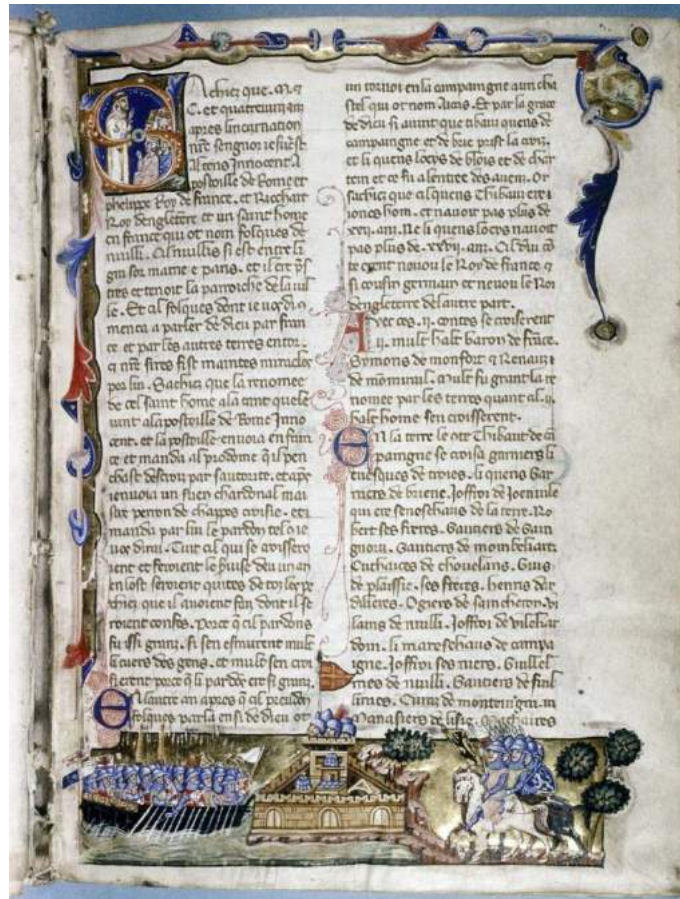 Achiez que. M. &
C. et quatreuinz am
apres lincarnation
nre sengnor iesucrist
Al tens Innocent A
postoille de Rome et
phelippe Roy de france. et Ricchart
Roy dengletere et un saint home
en france qui ot nom folques de
nuilli. Cil nuillis si est entre li
gni sor marne e paris. et il ere
tres et tenoit la parroiche de la uil
le. Et cil folques dont ie uos di
menca a parler de dieu par fran
ce et par les autres terres entor.
nre sires fist maintes miracles
por lui. Sachiez que la renomee
de cel saint home ala tant quele
uint alapostoille de Rome Inno
cent. et la postoille enuoia en fran
ce et manda al prodome qil
chast des croiz par sautorite. et apres
i enuoia un suen chardonal mai
stre perron de chappes croisie. et
manda par lui le pardon tel
uos dirai. Tuit cil qui se croisseroi
ent et feroient le seruise deu un an
en lost seroient quites de toz les pe
chiez que il auoient faiz dont il se
roient confes. Porce q cil pardons
fu issi granz. si sen esmurent mult
li cuers des gens. et mult sen croi
sierent porce q li pardos ere si granz.
En lautre an apres q cil preudom
folques parla ensi de dieu ot
un tornoi en la campaingne a un cha
stel qui ot nom Aicris. Et par la grace
de dieu si auint que tibauz quens de
campaingne et de brie prist la croiz.
et li quens loeys de blois et de char
tein et ce fu a lentree des anem. Or
sachiez que cil quens Thibauz ere i
iones hom. et nauoit pas plus de
xxij. anz. Ne li quens loeys nauoit
pas plus de .xxvij. anz. Cil dui
te erent neuou le Roy de france &
si cousin germain et neuou le Roi
dengleterre de lautre part.
Auec ces .ij. contes se croisierent
.ij. mult halt baron de france.
Symons de monfort & Renauz
de monmirail. Mult fu grant la re
nomee par les terres quant cil .ij.
halt home sen croisserent.
En la terre le cte Thibaut de
paingne se croisa garniers li
euesques de troies. li quens Gar
niers de briene. Joffroi de Joenuile
qui ere senoschaus de la terre. Ro
bert ses freres. Gautiers de Gain
gnoru. Gautiers de mombeliart.
Euthaices de chouelans. Guis
de plaissie. ses freres. henris dar
dillieres. Ogiers de saincheron. Vi
lains de nuilli. Joffroi de vilehar
doin. li mareschaus de campa
igne. Joffroi ses niers. Guillel
mes de nuilli. Gautiers de fuil
lignes.
Manasiers de lisle. Machaires